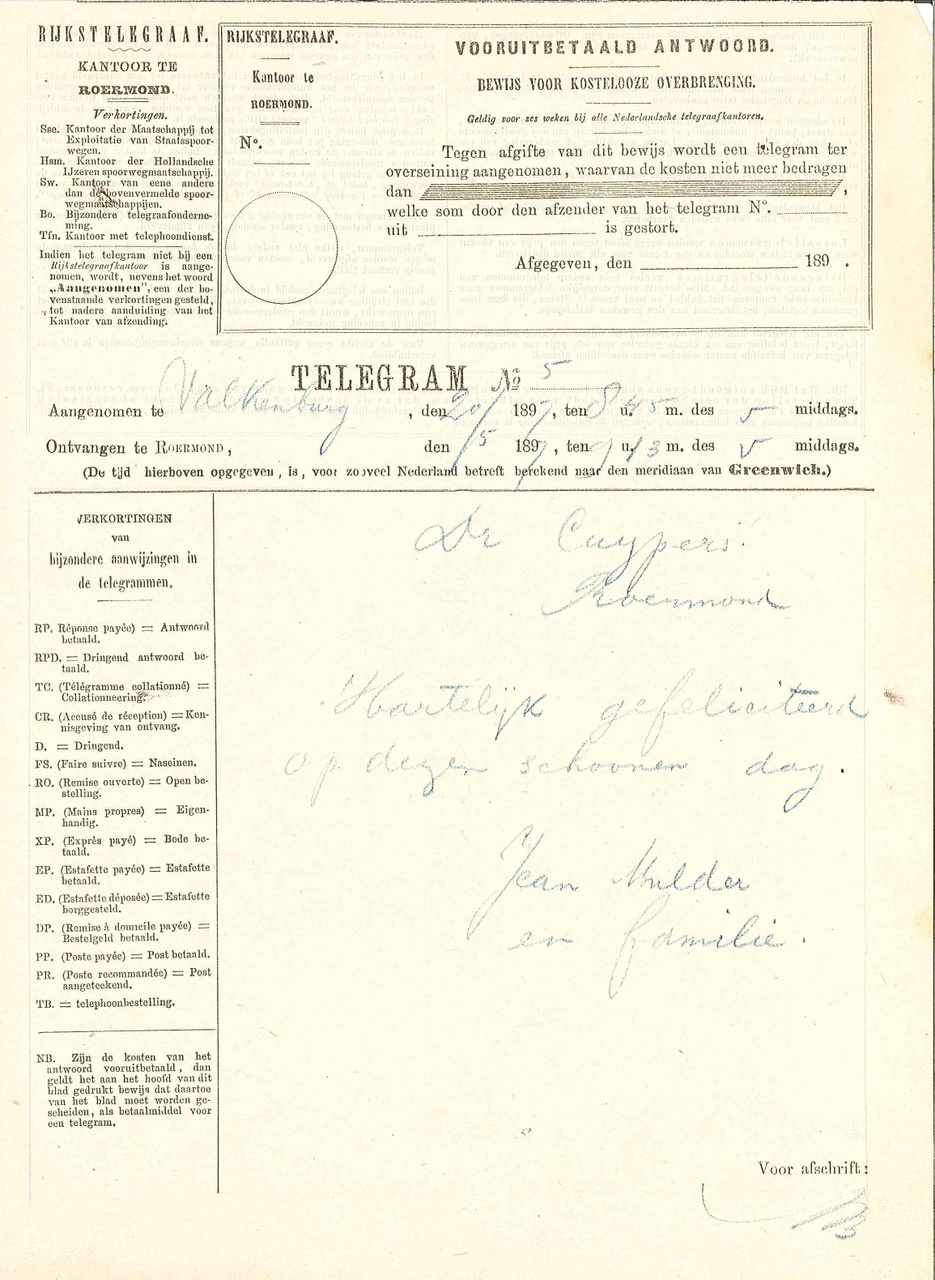 RIJKSTELEGRAAF.
KANTOOR TE
ROERMOND.
Verkortingen.
Sse. Kantoor der Maatschappij tot
Exploitatie van Staatsspoor-
wegen.
Hsm. Kantoor der Hollandsche
IJzeren spoorwegmaatschappij.
Sw. Kantoor van eene andere
dan de bovenvermelde spoor-
wegmaatschappijen.
Bo. Bijzondere telegraafonderne-
ming.
Tfn. Kantoor met telephoondienst.
Indien het telegram niet bij een
Rijkstelegraafkantoor is aange-
nomen, wordt, nevens het woord
„Aangenomen”, een der bo-
venstaande verkortingen gesteld,
tot nadere aanduiding van het
Kantoor van afzending.
RIJKSTELEGRAAF.
Kantoor te
ROERMOND.
N°.
VOORUITBETAALD ANTWOORD.
BEWIJS VOOR KOSTELOOZE OVERBRENGING.
Geldig voor zes weken bij alle Nederlandsche telegraafkantoren.
Tegen afgifte van dit bewijs wordt een telegram ter
overseining aangenomen, waarvan de kosten niet meer bedragen
dan ,
welke som door den afzender van het telegram N°.
uit is gestort.
Afgegeven, den 189 .
TELEGRAM N° 5
Aangenomen te Valkenburg, den 20/ 1897, ten 8 u. 45 m. des v middags.
Ontvangen te ROERMOND, den /5 1897, ten 9 u. 13 m. des v middags.
(De tijd hierboven opgegeven, is, voor zooveel Nederland betreft berekend naar den meridiaan van Greenwich.)
VERKORTINGEN
van
bijzondere aanwijzingen in
de telegrammen.
RP. Réponse payée) = Antwoord
betaald.
RPD. = Dringend antwoord be-
taald.
TC. (Télégramme collationné) =
Collationneering.
CR. (Accusé de réception) = Ken-
nisgeving van ontvang.
D. = Dringend.
FS. (Faire suivre) = Naseinen.
RO. (Remise ouverte) = Open be-
stelling.
MP. (Mains propres) = Eigen-
handig.
XP. (Exprès payé) = Bode be-
taald.
EP. (Estafette payée) = Estafette
betaald.
ED. (Estafette déposée) = Estafette
borggesteld.
DP. (Remise à domicile payée) =
Bestelgeld betaald.
PP. (Poste payée) = Post betaald.
PR. (Poste recommandée) = Post
aangeteekend.
TB. = telephoonbestelling.
NB. Zijn de kosten van het
antwoord vooruitbetaald, dan
geldt het aan het hoofd van dit
blad gedrukt bewijs dat daartoe
van het blad moet worden ge-
scheiden, als betaalmiddel voor
een telegram.
Dr Cuypers.
Roermond
Hartelijk gefeliciteerd
op dezen schoonen dag.
Jean Mulder
en familie.
Voor afschrift: